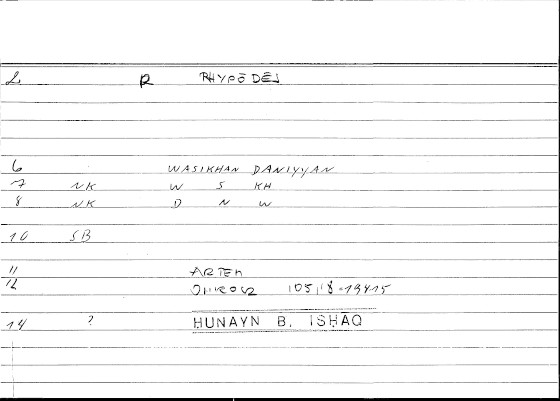 2 R RHYPŌDĒS
6 WASIKHAN DANIYYAN
7 NK W S KH
8 NK D N W
10 SB
11 ARTEM
12 105,18-19415
14 ? HUNAYN B. ISHĀQ